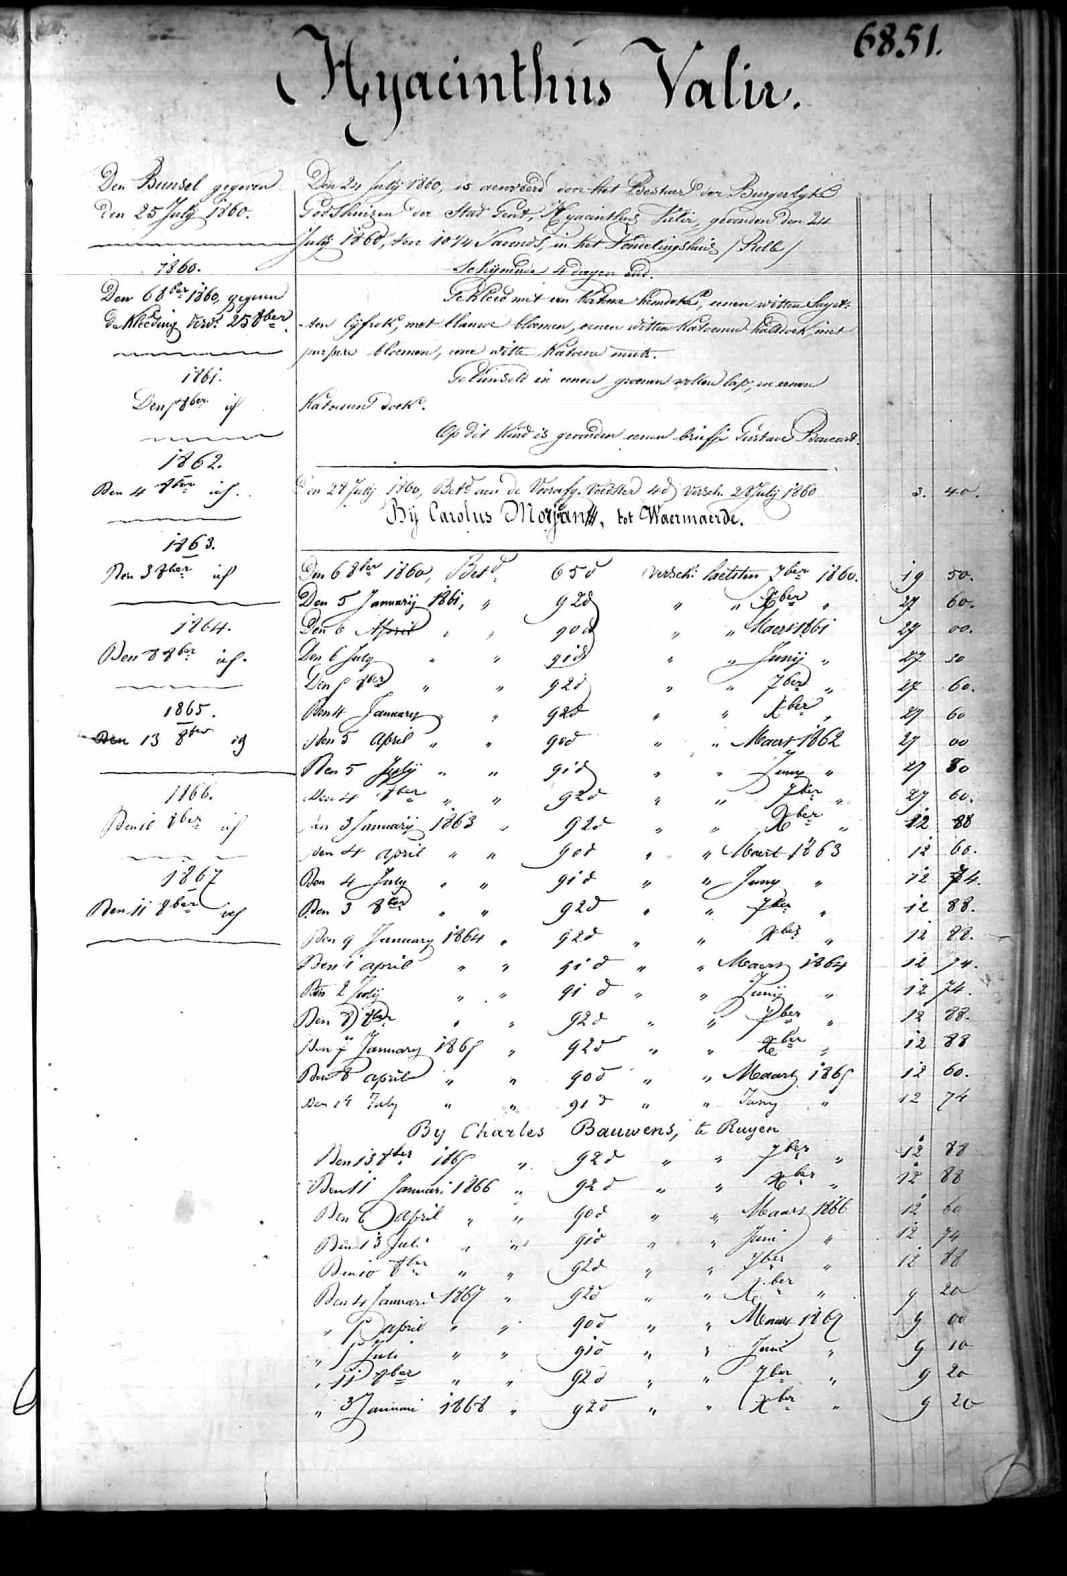 6851.
Hyacinthus Valir.
Den Bunsel gegeven
den 25 July 1860.
1860.
Den 6 8ber 1860, gegeven
de Kleeding
1861.
Den 5 8ber id
1862.
Den 4 8ber id.
1863.
Den 3 8ber id
1864.
Den 8 8ber id.
1865.
Den 13 8ber id
1866.
Den 10 8ber id
1867
Den 11 8ber id
Den 24 July 1860, is aenveerd door het Bestuur der Burgerlyke
Godshuizen der Stad Gent, Hyacinthus Valir, gevonden den 24
July 1860, ten 10 1/4 's avonds, in het Vondelingshuis
Schynende 4 dagen oud.
Gekleed met een katoene hemdeke, eenen witten
lyfrok, met blauwe bloemen, eenen witten katoenen halsdoek, met
purpere bloemen, eene witte katoene muts.
Gebunseld in eenen groenen wollen lap, en eenen
katoenen doek.
Op dit kind is gevonden eenen briefje Gustave
Den 27 July 1860, Betd aen de Voorafg. Voedster 4d versch. 28 July 1860 3. 40.
By Carolus Morjan, tot Waermaerde.
Den 6 8ber 1860, Betd. 65d versch. laetsten 7ber 1860. 19 50.
Den 5 January 1861, " 92d " " Xber " 27 60.
Den 6 April " " 90d " " Maert 1861 27 00.
Den 6 July " " 91d " " Juny " 27 30
Den 5 8ber " " 92d " " 7ber " 27 60.
Den 4 January " 92d " " Xber " 27 60
Den 5 April " " 90d " " Maert 1862 27 00
Den 5 July " " 91d " " Juny " 27 30
Den 4 8ber " " 92d " " 7ber " 27 60.
Den 3 January 1863 " 92d " " Xber " 12 88
Den 4 April " " 90d " " Maert 1863 12 60.
Den 4 July " " 91d " " Juny " 12 74.
Den 3 8ber " " 92d " " 7ber " 12 88.
Den 9 January 1864 " 92d " " Xber " 12 88.
Den 1 april " " 91d " " Maert 1864 12 74.
Den 2 July " " 91d " " Juny " 12 74.
Den 8 8ber " " 92d " " 7ber " 12 88.
Den 7 January 1865 " 92d " " Xber " 12 88
Den 8 april " " 90d " " Maart 1865 12 60.
Den 14 July " " 91d " " Juny " 12 74
By Charles Bauwens, te Ruyen
Den 13 8ber 1865 " 92d " " 7ber " 12 88
Den 11 Januari 1866 " 92d " " Xber " 12 88
Den 6 April " " 90d " " Maart 1866 12 60
Den 13 Juli " " 91d " " Juni " 12 74
Den 10 8ber " " 92d " " 7ber " 12 88
Den 4 Januari 1867 " 92d " " Xber " 9 20
" 5 april " " 90d " " Maart 1867 9 00
" 5 Juli " " 91d " " Juni " 9 10
" 11 8ber " " 92d " " 7ber " 9 20
" 3 Januari 1868 " 92d " " Xber " 9 20